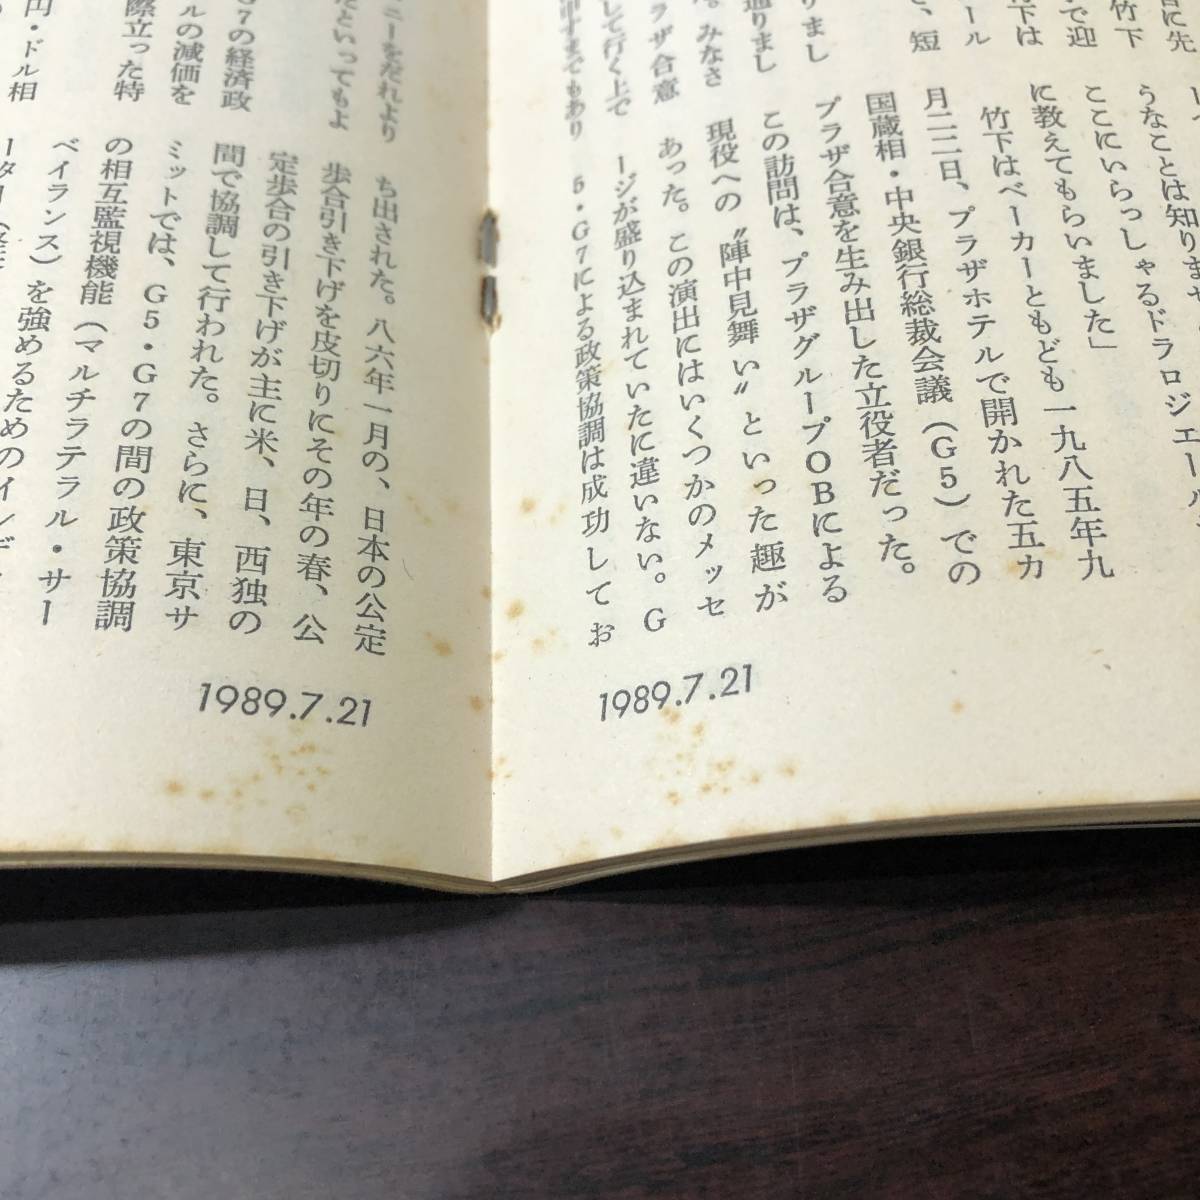 うなことは知りませ
ここにいらっしゃるドラロジエール
に教えてもらいました」
竹下はベーカーともども一九八五年九
月二二日、プラザホテルで開かれた五カ
国蔵相・中央銀行総裁会議（G5）での
プラザ合意を生み出した立役者だった。
この訪問は、プラザグループOBによる
現役への〝陣中見舞い〟といった趣が
あった。この演出にはいくつかのメッセ
ージが盛り込まれていたに違いない。G
5・G7による政策協調は成功してお
に先
で迎
竹下
下は
ール
、短
りまし
通りまし
。みなさ
ラザ合意
して行く上で
申すまでもあり
1989.7.21
ち出された。八六年一月の、日本の公定
歩合引き下げを皮切りにその年の春、公
定歩合の引き下げが主に米、日、西独の
間で協調して行われた。さらに、東京サ
ミットでは、G5・G7の間の政策協調
の相互監視機能（マルチラテラル・サー
ベイランス）を強めるためのインデ
ニーをだれより
たといってもよ
G7の経済政
ルの減価を
際立った特
円・ドル相
1989.7.21